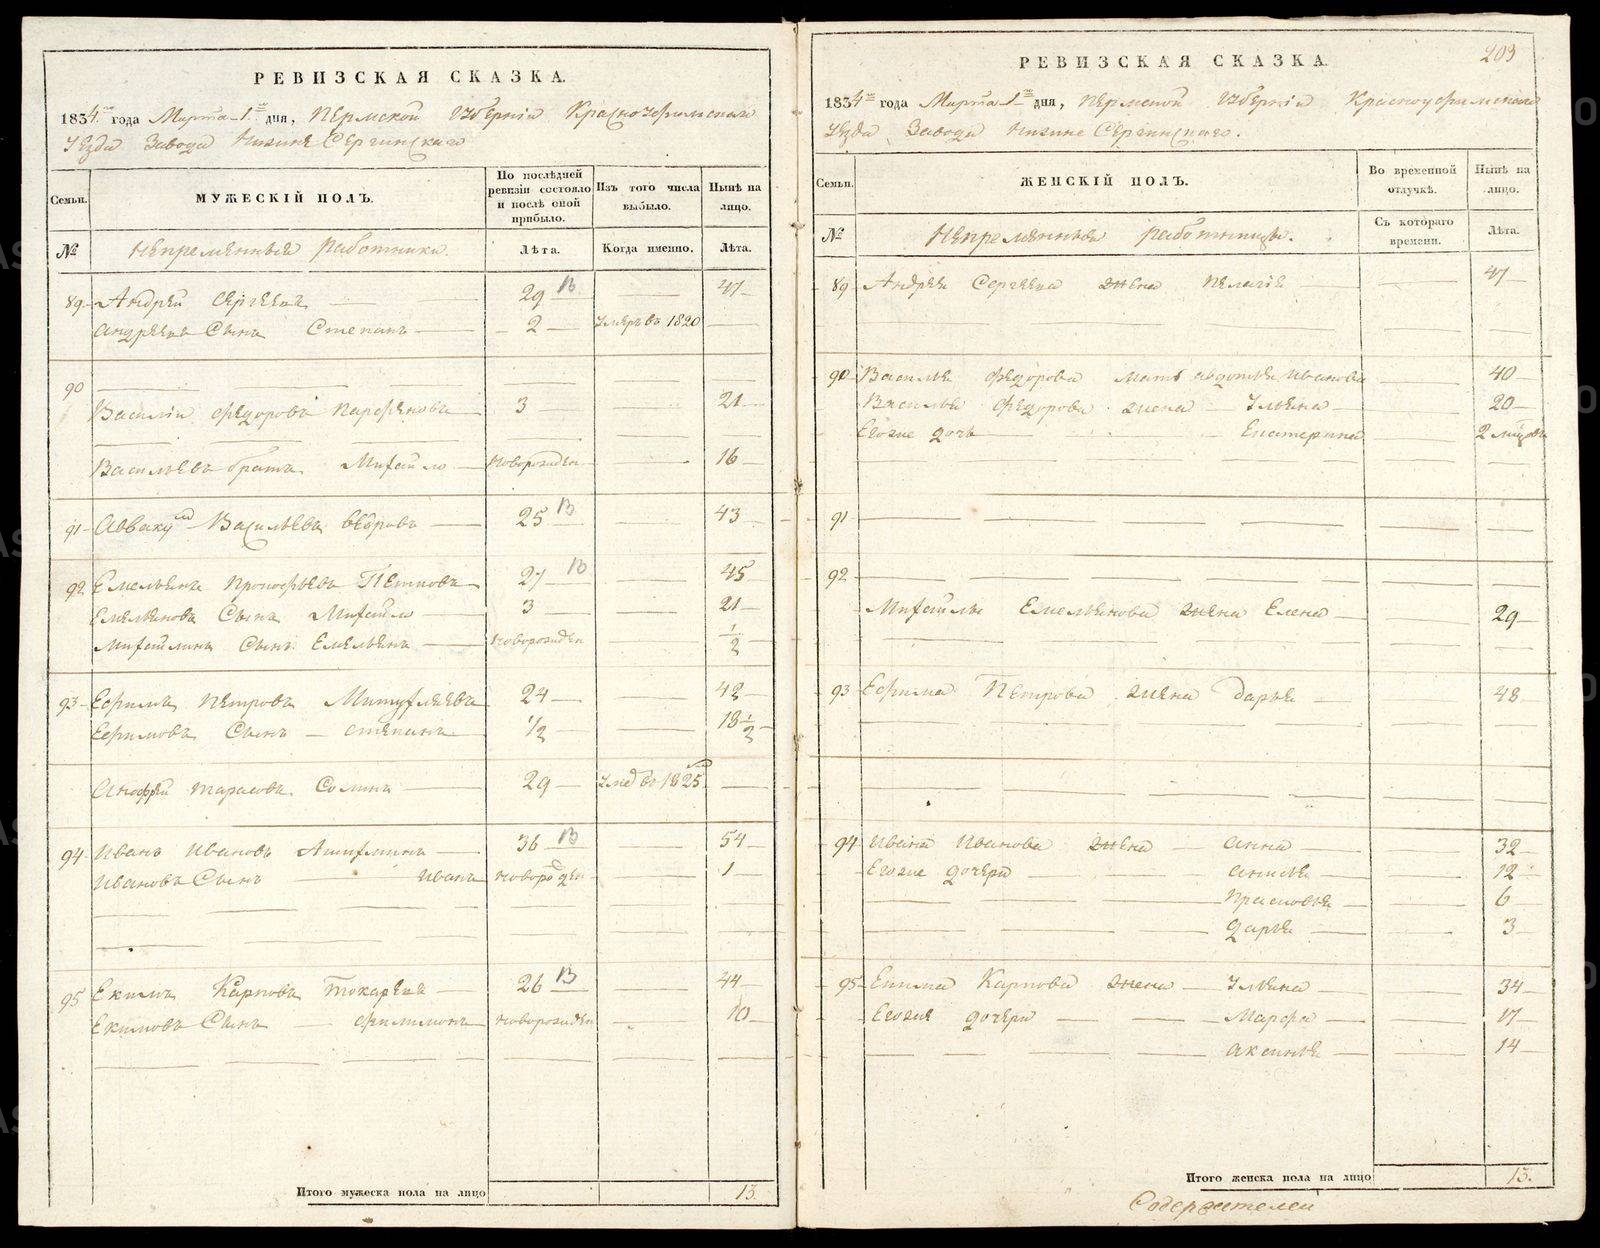 РЕВИЗСКАЯ СКАЗКА.
1834 года Марта 1 дня, Пермской Губернiи Красноуфимскаго
Уезда Завода Нижне Сергинскаго
Семьи. МУЖЕСКIЙ ПОЛЪ. По послѣдней ревизiи состояло и послѣ оной прибыло. Изъ того числа выбыло. Нынѣ на лицо.
№ Непременныя работники. Лѣта. Когда именно. Лѣта.
89 Андрей Сергеевъ 29 В 47
Андреевъ Сынъ Степанъ 2 умеръ въ 1820
90
Василiи Федоровъ Парфеновъ 3 21
Васильевъ братъ Михайло новорожден 16
91 Аввакум Васильевъ 25 В 43
92 Емельянъ Прокофьевъ 27 В 45
Емельяновъ Сынъ Михайло 3 21
Михайлинъ Сынъ Емельянъ новорожден 1/2
93 Ефимъ Петровъ 24 42
Ефимовъ Сынъ Степанъ 1/2 18 1/2
Тарасовъ 29 въ 1825
94 Иванъ Ивановъ 36 В 54
Ивановъ Сынъ Иванъ новорожден 1
95 Екимъ Карповъ Токаревъ 26 В 44
Екимовъ Сынъ Филимонъ новорожден 10
Итого мужеска пола на лицо 13.
203
РЕВИЗСКАЯ СКАЗКА.
1834 года Марта 1 дня, Пермской Губернiи Красноуфимскаго
Уезда Завода Нижне Сергинскаго.
Семьи. ЖЕНСКIЙ ПОЛЪ. Во временной отлучкѣ. Нынѣ на лицо.
№ Непременныя работницы. Съ котораго времени. Лѣта.
89 Андрея Сергеева жена Пелагiя 47
90 Василья Федорова мать Авдотья Иванова 40
Василья Федорова жена Ульяна 20
Егоже дочь Екатерина 2
91
92
Михайлы Емельянова жена Елена 29
93 Ефима Петрова жена Дарья 48
94 Ивана Иванова жена Анна 32
Егоже дочери Анисья 12
Прасковья 6
Дарья 3
95 Екима Карпова жена Ульяна 34
Егоже дочери Марфа 17
Аксинья 14
Итого женска пола на лицо 13.